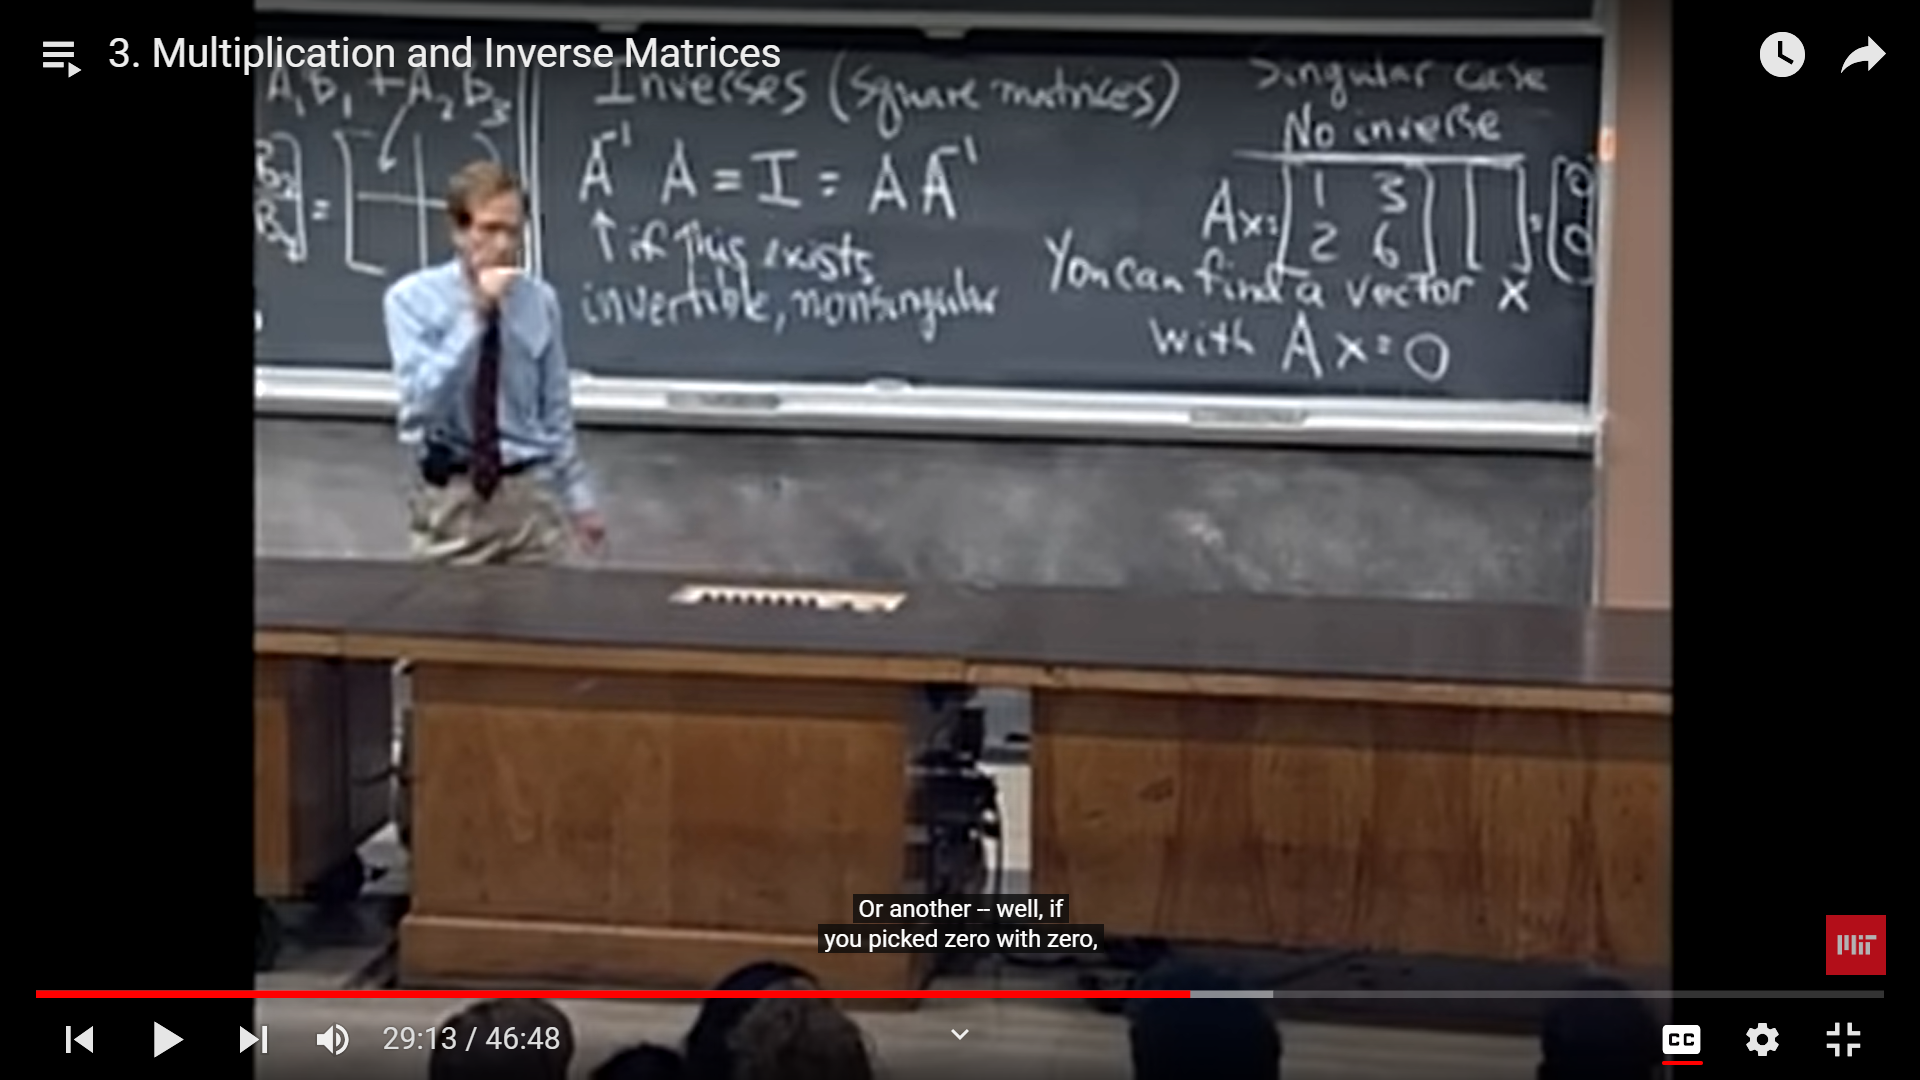 3. Multiplication and Inverse Matrices
A₁B₁ + A₂B₃
B₂
B₄
=
Inverses (square matrices)
A⁻¹ A = I = A A⁻¹
↑ if this exists
invertible, nonsingular
Singular case
No inverse
Ax = [1 3] [ ] = [0]
[2 6] [ ] [0]
You can find a vector x
with Ax = 0
Or another -- well, if
you picked zero with zero,
MIT
29:13 / 46:48
CC